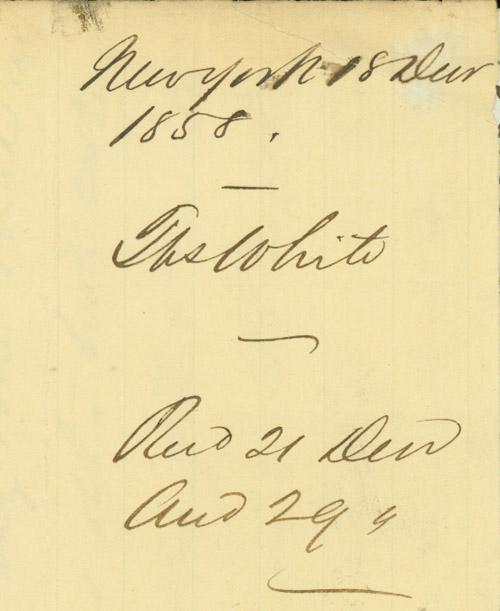 New york 18 Decr
1858.
—
Ths White
—
Recd 21 Decr
Ansd 29 "